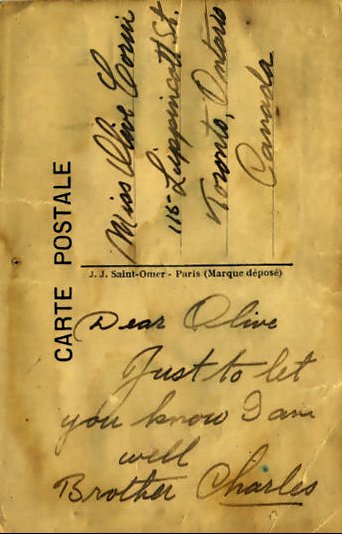 CARTE POSTALE
Miss Olive Corin
116 Lippincott St.
Toronto, Ontario
Canada
J. J. Saint-Omer - Paris (Marque déposé)
Dear Olive
Just to let
you know I am
well
Brother Charles